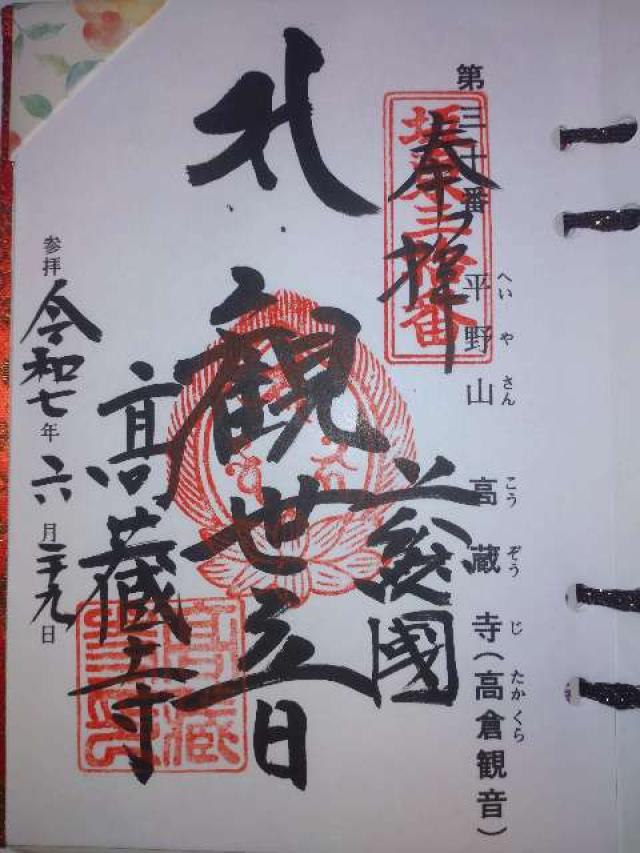 第三十番 平野山 高蔵寺(高倉観音)
へいやさん こうぞうじ たかくら
奉拝
坂東三拾番
上総國
札
観世音
高蔵寺
参拝
令和七年六月二十九日